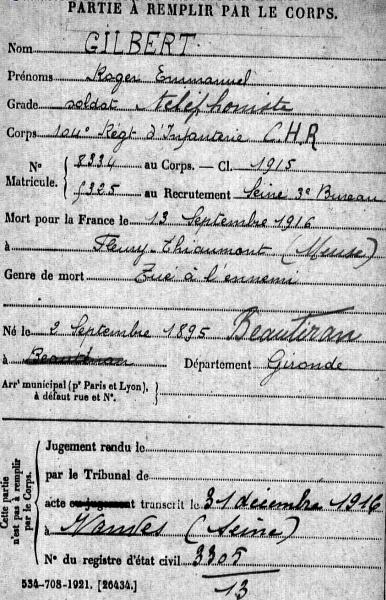 PARTIE À REMPLIR PAR LE CORPS.
Nom GILBERT
Prénoms Roger Emmanuel
Grade soldat téléphoniste
Corps 104e Régt d'Infanterie C.H.R
N° Matricule. 8334 au Corps. — Cl. 1915
5325 au Recrutement Seine 3e Bureau
Mort pour la France le 13 Septembre 1916
à Fleury Thiaumont (Meuse)
Genre de mort Tué à l'ennemi
Né le 2 Septembre 1895 Beautiran
à Département Gironde
Arrt municipal (pr Paris et Lyon),
à défaut rue et N°.
Cette partie n'est pas à remplir par le Corps.
Jugement rendu le
par le Tribunal de
acte ou jugement transcrit le 31 décembre 1916
à (Seine)
N° du registre d'état civil 3305
13
534-708-1921. [26434.]